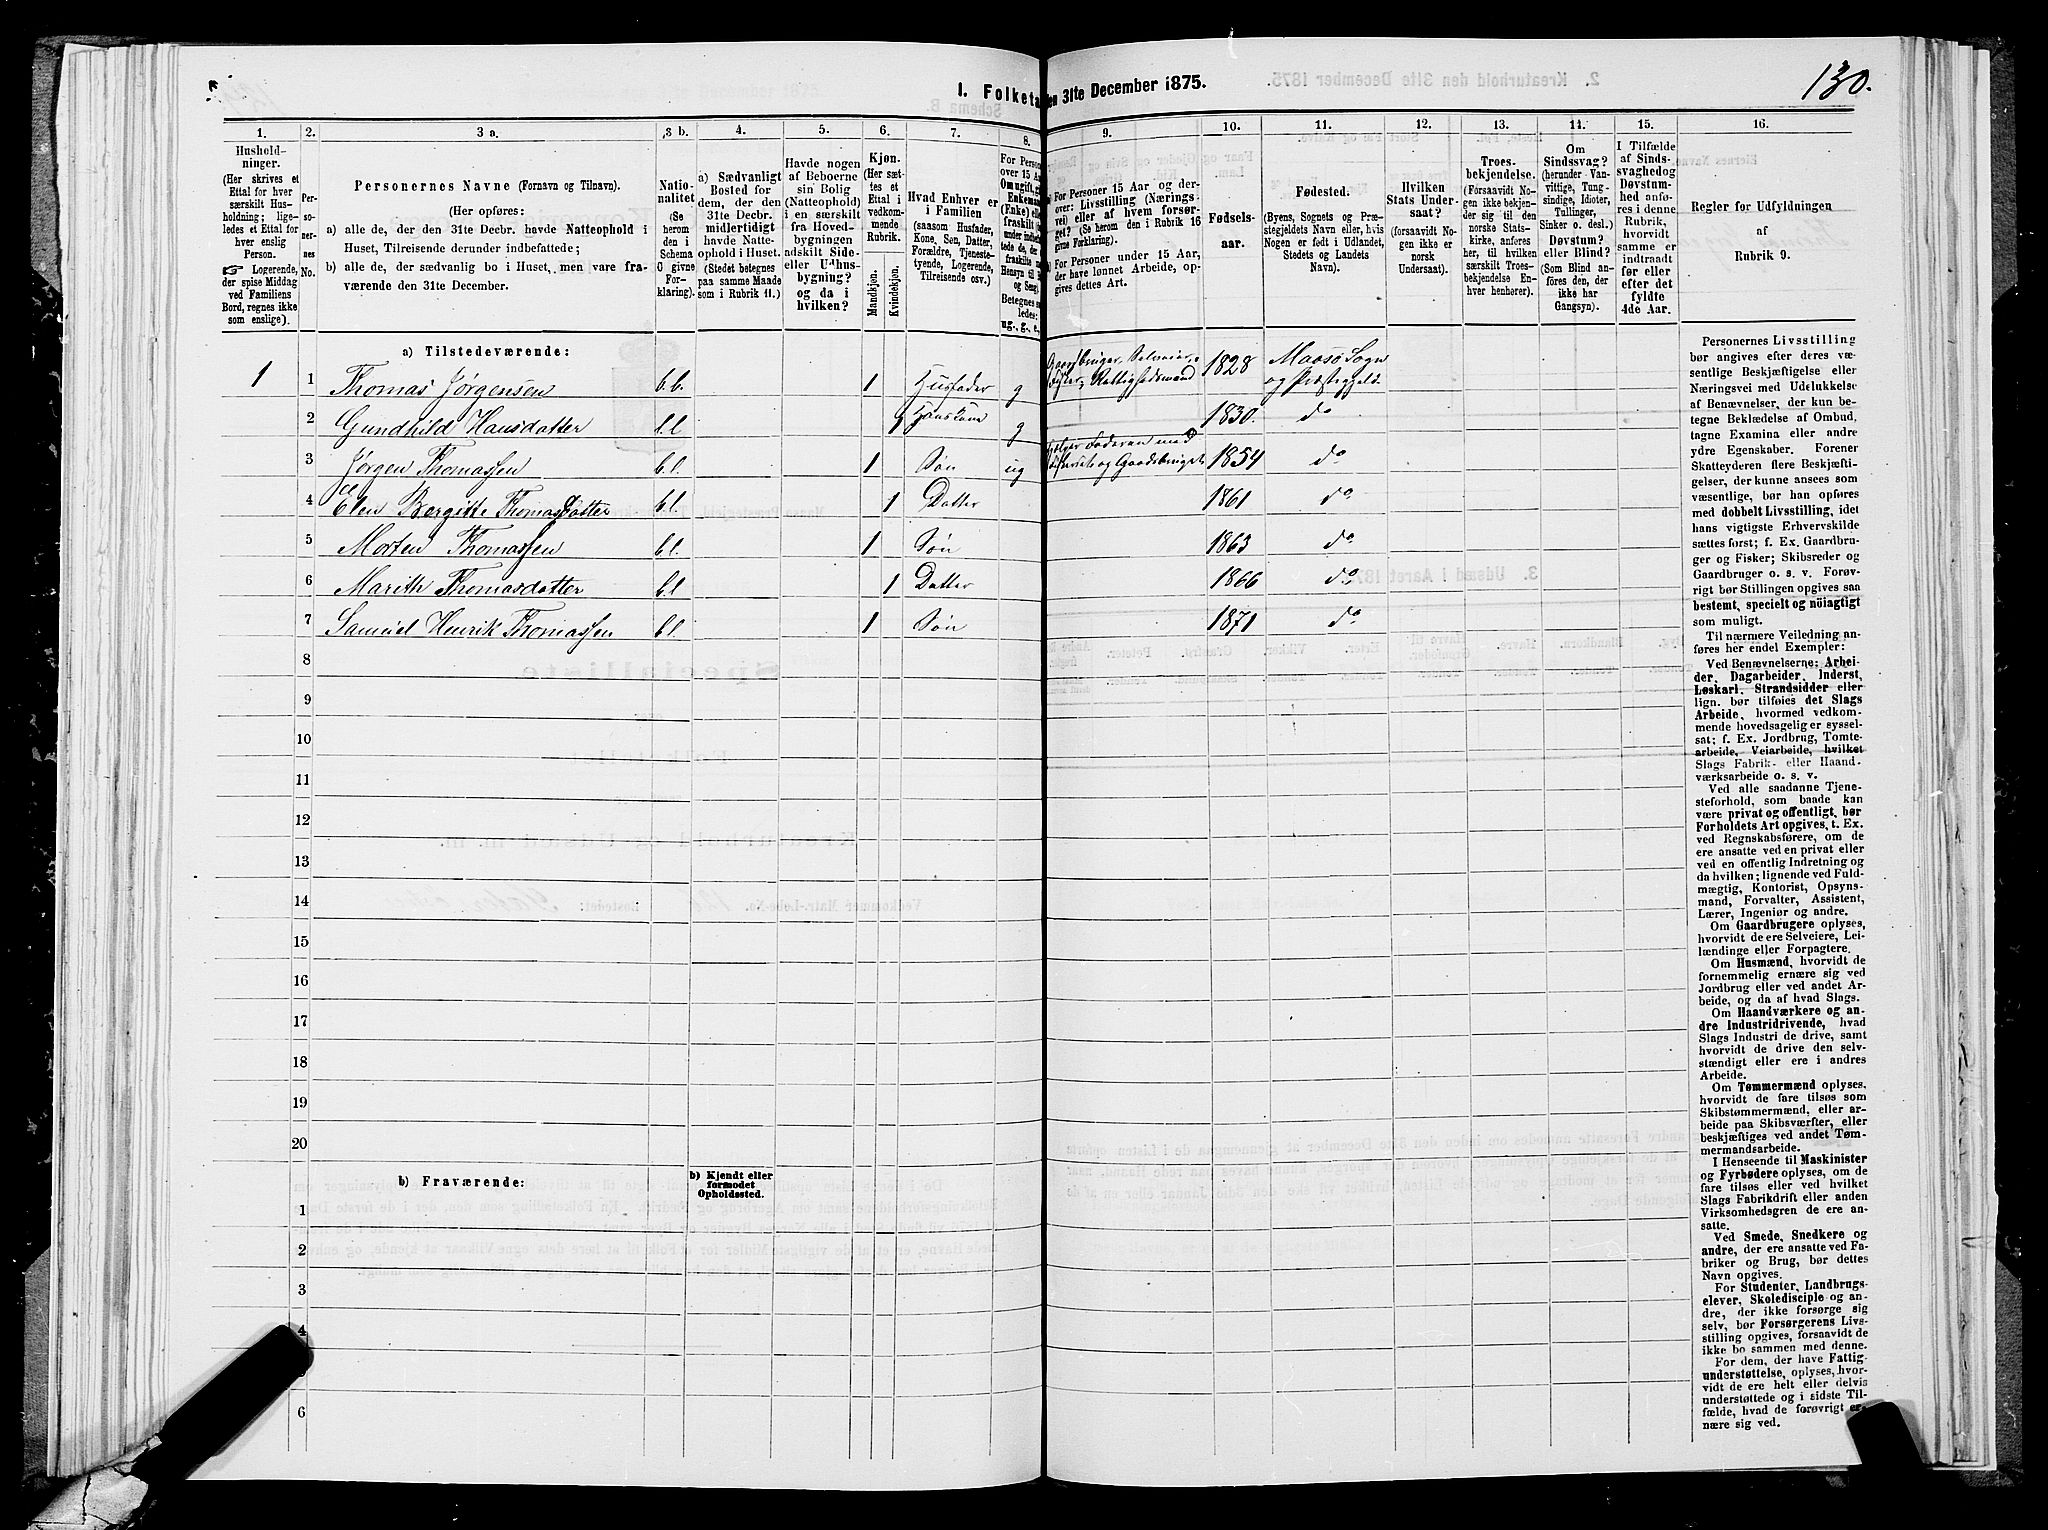 130.
1. Folketa
en 31te December 1875.
1.
2.
3 a.
3 b.
4.
5.
6.
7.
8.
9.
10.
11.
12.
13.
14.
15.
16.
Hushold-
ninger.
(Her skrives et
Ettal for hver
særskilt Hus-
holdning; lige-
ledes et Ettal for
hver enslig
Person.
☞ Logerende,
der spise Middag
ved Familiens
Bord, regnes ikke
som enslige).
Per-
so-
ner-
nes
No.
Personernes Navne (Fornavn og Tilnavn).
(Her opføres:
a) alle de, der den 31te Decbr. havde Natteophold i
Huset, Tilreisende derunder indbefattede;
b) alle de, der sædvanlig bo i Huset, men vare fra-
værende den 31te December.
Natio-
nalitet
(Se
herom
den i
Schema
O givne
For-
klaring).
a) Sædvanligt
Bosted for
dem, der den
31te Decbr.
midlertidigt
havde Natte-
ophold i Huset.
(Stedet betegnes
paa samme Maade
som i Rubrik 11.)
Havde nogen
af Beboerne
sin Bolig
(Natteophold)
i en særskilt
fra Hoved-
bygningen
adskilt Side-
eller Udhus-
bygning?
og da i
hvilken?
Kjøn.
(Her sæt-
tes et
Ettal i
vedkom-
mende
Rubrik.
Mandkjøn.
Kvindekjøn.
Hvad Enhver er
i Familien
(saasom Husfader,
Kone, Søn, Datter,
Forældre, Tjeneste-
tyende, Logerende,
Tilreisende osv.)
For Person
over 15 Aar
Om ugift, g
Enkema
(Enke) elle
fraskilt
Hensyn til
og Seng
Betegnes s
ledes:
ug., g., e,
For Personer 15 Aar og der-
over: Livsstilling (Nærings-
vei) eller af hvem forsør-
get? (Se herom den i Rubrik 16
givne Forklaring).
For Personer under 15 Aar,
der have lønnet Arbeide, op-
gives dettes Art.
Fødsels-
aar.
Fødested.
(Byens, Sognets og Præ-
stegjeldets Navn eller, hvis
Nogen er født i Udlandet,
Stedets og Landets
Navn).
Hvilken
Stats Under-
saat?
(forsaavidt No-
gen ikke er
norsk
Undersaat).
Troes-
bekjendelse.
(Forsaavidt No-
gen ikke bekjen-
der sig til den
norske Stats-
kirke, anføres
her, til hvilken
særskilt Troes-
bekjendelse En-
hver henhører).
Om
Sindssvag?
(herunder Van-
vittige, Tung-
sindige, Idioter,
Tullinger,
Sinker o. desl.)
Døvstum?
eller Blind?
(Som Blind an-
føres den, der
ikke har
Gangsyn).
I Tilfælde
af Sinds-
svaghedog
Døvstum-
hed anfø-
res i denne
Rubrik,
hvorvidt
samme er
indtraadt
før eller
efter det
fyldte
4de Aar.
Regler for Udfyldningen
af
Rubrik 9.
a) Tilstedeværende:
1 1 Thomas Jørgensen b.b. 1 Husfader g Gaardbruger, Selveier, Fisker, Rettighedsmand 1828 Maasø Sogn og Præstegjeld
2 Gundhild Hansdatter b.l 1 g 1830. do
3 Jørgen Thomassen b.l. 1 Søn ug 1854 do
4 Elen Bergitte Thomasdatter b.l. 1 Datter 1861 do
5 Morten Thomassen b.l. 1 Søn 1863 do
6 Marith Thomasdatter b.l 1 Datter 1866 do
7 Samuel Henrik Thomassen b.l. 1 Søn 1871 do
8
9
10
11
12
13
14
15
16
17
18
19
20
b) Fraværende:
b) Kjendt eller
formodet
Opholdssted.
1
2
3
4
6
Personernes Livsstilling
bør angives efter deres væ-
sentlige Beskjæftigelse eller
Næringsvei med Udelukkelse
af Benævnelser, der kun be-
tegne Beklædelse af Ombud,
tagne Examina eller andre
ydre Egenskaber. Forener
Skatteyderen flere Beskjæfti-
gelser, der kunne ansees som
væsentlige, bør han opføres
med dobbelt Livsstilling, idet
hans vigtigste Erhvervskilde
sættes først; f. Ex. Gaardbru-
ger og Fisker; Skibsreder og
Gaardbruger o. s. v. Forøv-
rigt bør Stillingen opgives saa
bestemt, specielt og nøiagtigt
som muligt.
Til nærmere Veiledning an-
føres her endel Exempler:
Ved Benævnelserne: Arbei-
der, Dagarbeider, Inderst,
Løskarl, Strandsidder eller
lign. bør tilføies det Slags
Arbeide, hvormed vedkom-
mende hovedsagelig er syssel-
sat; f. Ex. Jordbrug, Tomte-
arbeide, Veiarbeide, hvilket
Slags Fabrik- eller Haand-
værksarbeide o. s. v.
Ved alle saadanne Tjene-
steforhold, som baade kan
være privat og offentligt, bør
Forholdets Art opgives, t. Ex.
ved Regnskabsførere, om de
ere ansatte ved en privat eller
ved en offentlig Indretning og
da hvilken; lignende ved Fuld-
mægtig, Kontorist, Opsyns-
mand, Forvalter, Assistent,
Lærer, Ingeniør og andre.
Om Gaardbrugere oplyses,
hvorvidt de ere Selveiere, Lei-
lændinge eller Forpagtere.
Om Husmænd, hvorvidt de
fornemmelig ernære sig ved
Jordbrug eller ved andet Ar-
beide, og da af hvad Slags.
Om Haandværkere og an-
dre Industridrivende, hvad
Slags Industri de drive, samt
hvorvidt de drive den selv-
stændigt eller ere i andres
Arbeide.
Om Tømmermænd oplyses,
hvorvidt de fare tilsøs som
Skibstømmermænd, eller ar-
beide paa Skibsværfter, eller
beskjæftiges ved andet Tøm-
mermandsarbeide.
I Henseende til Maskinister
og Fyrbødere oplyses, om de
fare tilsøs eller ved hvilket
Slags Fabrikdrift eller anden
Virksomhedsgren de ere an-
satte.
Ved Smede, Snedkere og
andre, der ere ansatte ved Fa-
briker og Brug, bør dettes
Navn opgives.
For Studenter, Landbrugs-
elever, Skoledisciple og an-
dre, der ikke forsørge sig
selv, bør Forsørgerens Livs-
stilling opgives, forsaavidt de
ikke bo sammen med denne.
For dem, der have Fattig-
understøttelse, oplyses, hvor-
vidt de ere helt eller delvis
understøttede og i sidste Til-
fælde, hvad de forøvrigt er-
nære sig ved.